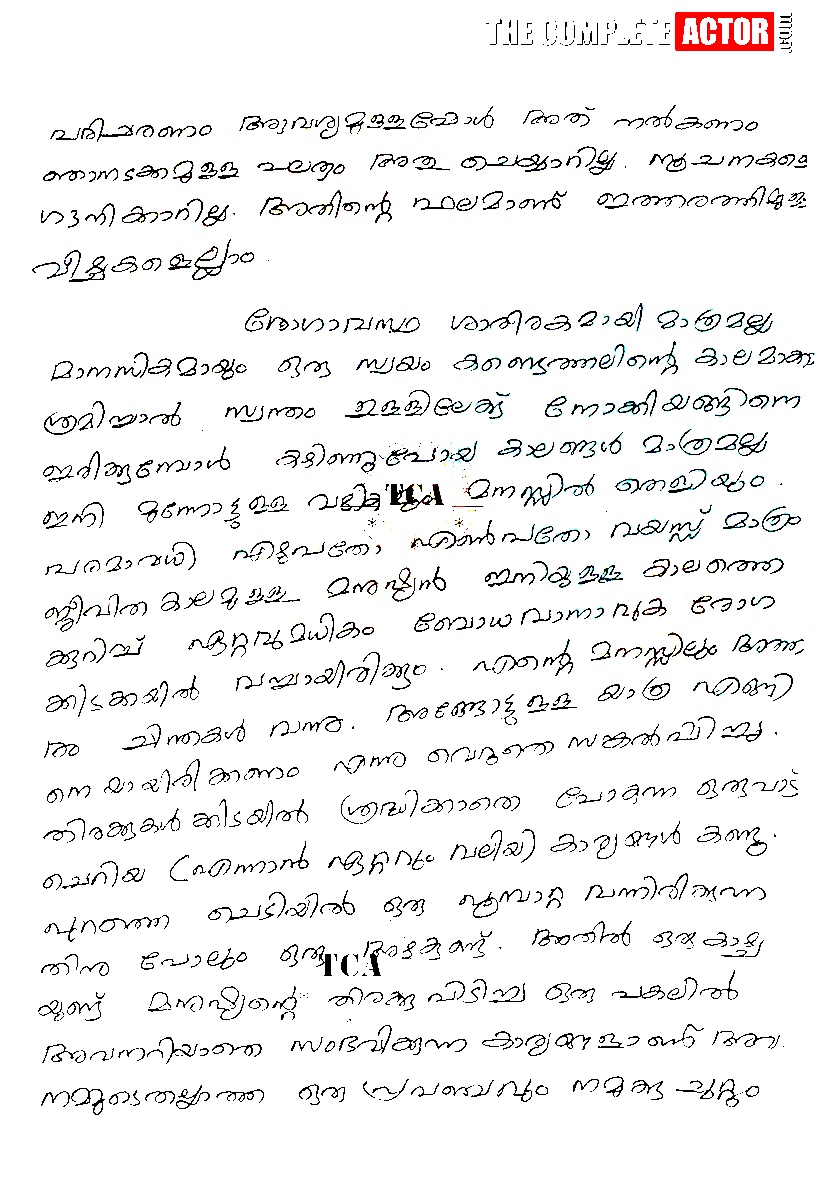 THE COMPLETE ACTOR
പരിചരണം ആവശ്യമുള്ളപ്പോൾ അത് നൽകണം
ഞാനടക്കമുള്ള പലരും അതു ചെയ്യാറില്ല. സൂചനകളെ
ഗൗനിക്കാറില്ല. അതിന്റെ ഫലമാണ് ഇത്തരത്തിലുള്ള
വീഴ്ചകളെല്ലാം.
രോഗാവസ്ഥ ശാരീരകമായി മാത്രമല്ല
മാനസികമായും ഒരു സ്വയം കണ്ടെത്തലിന്റെ കാലമാകും
ശ്രമിച്ചാൽ സ്വന്തം ഉള്ളിലേക്ക് നോക്കിയങ്ങിനെ
ഇരിക്കുമ്പോൾ കഴിഞ്ഞുപോയ കാലങ്ങൾ മാത്രമല്ല
ഇനി മുന്നോട്ടുള്ള വഴികളും മനസ്സിൽ തെളിയും.
TCA
പരമാവധി എഴുപതോ, എൺപതോ വയസ്സ് മാത്രം
ജീവിത കാലമുള്ള മനുഷ്യൻ ഇനിയുള്ള കാലത്തെ
ക്കുറിച്ച് ഏറ്റവുമധികം ബോധവാനാവുക രോഗ
ക്കിടക്കയിൽ വച്ചായിരിക്കും. എന്റെ മനസ്സിലും
ആ ചിന്തകൾ വന്നു. അങ്ങോട്ടുള്ള യാത്ര എങ്ങി
നെ യായിരിക്കണം എന്നു വെറുതെ സങ്കൽപ്പിച്ചു.
തിരക്കുകൾക്കിടയിൽ ശ്രദ്ധിക്കാതെ പോകുന്ന ഒരുപാട്
ചെറിയ (എന്നാൽ ഏറ്റവും വലിയ) കാര്യങ്ങൾ കണ്ടു.
പുറത്തെ ചെടിയിൽ ഒരു പൂമ്പാറ്റ വന്നിരിക്കുന്ന
തിനു പോലും ഒരു അഴകുണ്ട്. അതിൽ ഒരു കാഴ്ച
TCA
യുണ്ട് മനുഷ്യന്റെ തിരക്കു പിടിച്ച ഒരു പകലിൽ
അവനറിയാതെ സംഭവിക്കുന്ന കാര്യങ്ങളാണ് അവ.
നമ്മുടെതല്ലാത്ത ഒരു പ്രവഞ്ചവും നമുക്കു ചുറ്റും